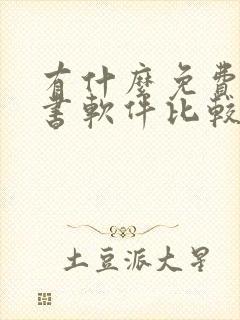 有什麼免費
書軟件比較
土豆派大星